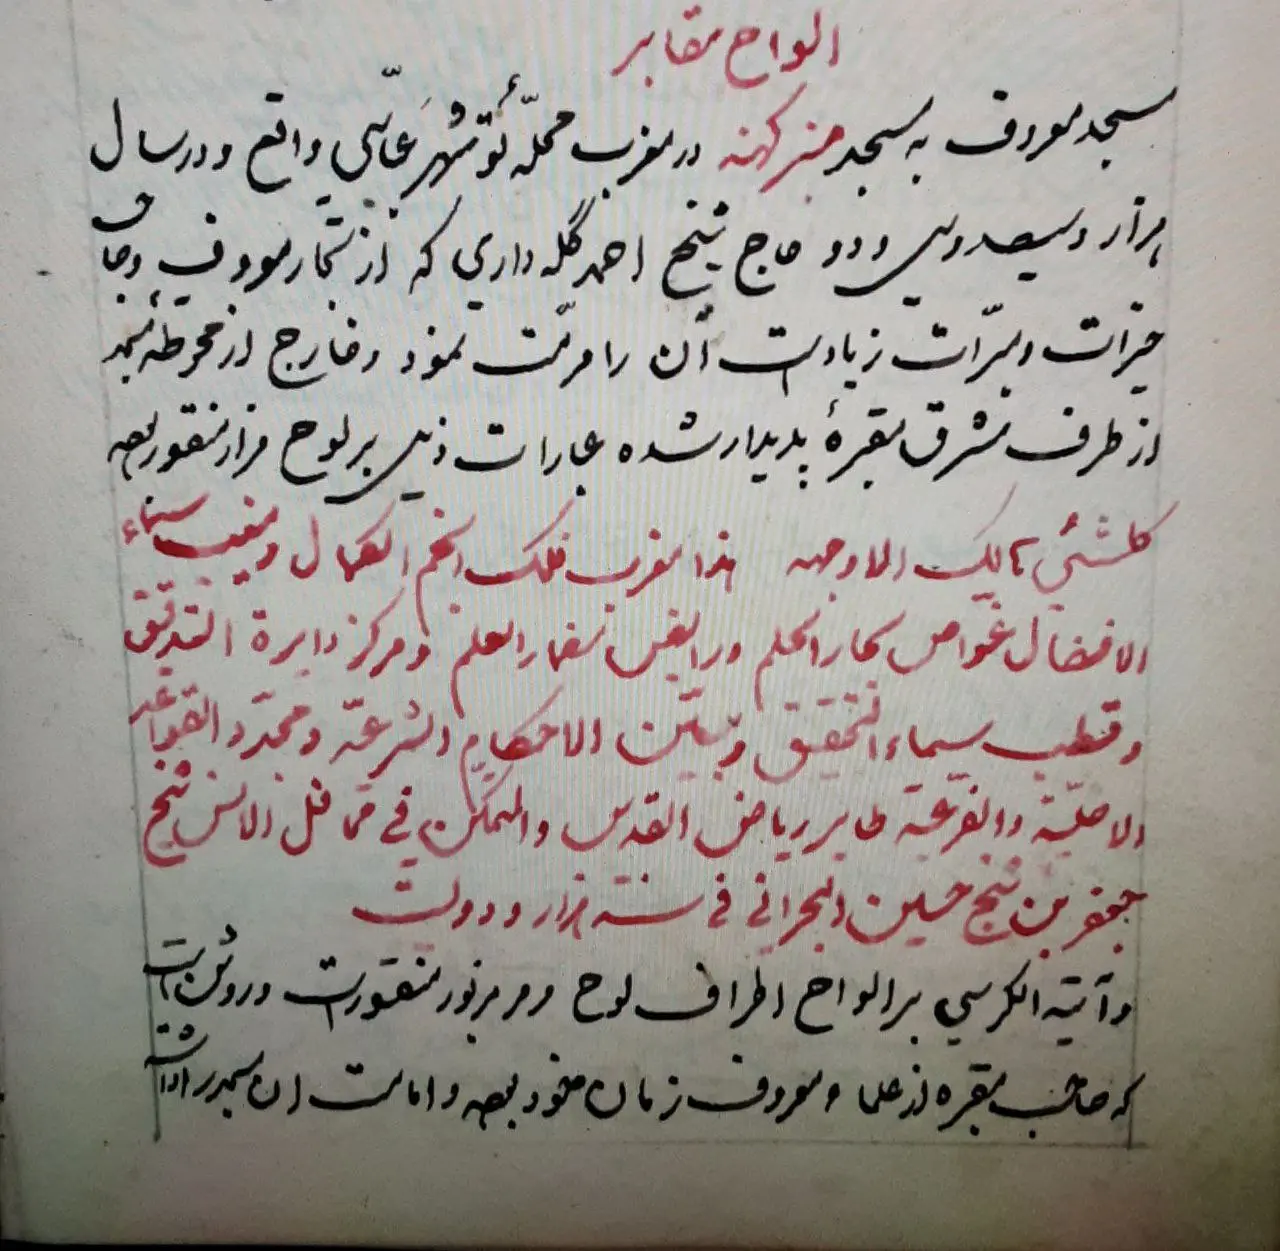 الواح مقابر
مسجد معروف به مسجد منبر کهنه در مغرب محلّهٔ توشهر عبّاسی واقع و در سال
هزار و سیصد و سی و دو حاج شیخ احمد گله داری که از تجار معروف و صاحب
خیرات و مبرّات زیادست آن را مرمّت نمود و خارج از محوطهٔ مسجد
از طرف مشرق مقبرهٔ پدیدار شده عبارات ذیل بر لوح مزار منقور بوده
کلشئی هالک الا وجهه هذا مغرب فلک انجم الکمال و مغیب سماء
الافضال غواص بحار الحلم و رایض مضمار العلم و مرکز دایرة التدقیق
و قطب سماء التحقیق و مبین الاحکام الشرعیّة و مجدد القواعد
الاصلیّة و الفرعیة طایر ریاض القدس و المتمکن فی محافل الانس شیخ
جعفر بن شیخ حسین البحرانی فی سنة هزار و دویست
و آیة الکرسی بر الواح اطراف لوح مرمر مزبور منقورست و روشن است
که صاحب مقبره از علما و معروف زمان خود بوده و امامت ان مسجد را داشته